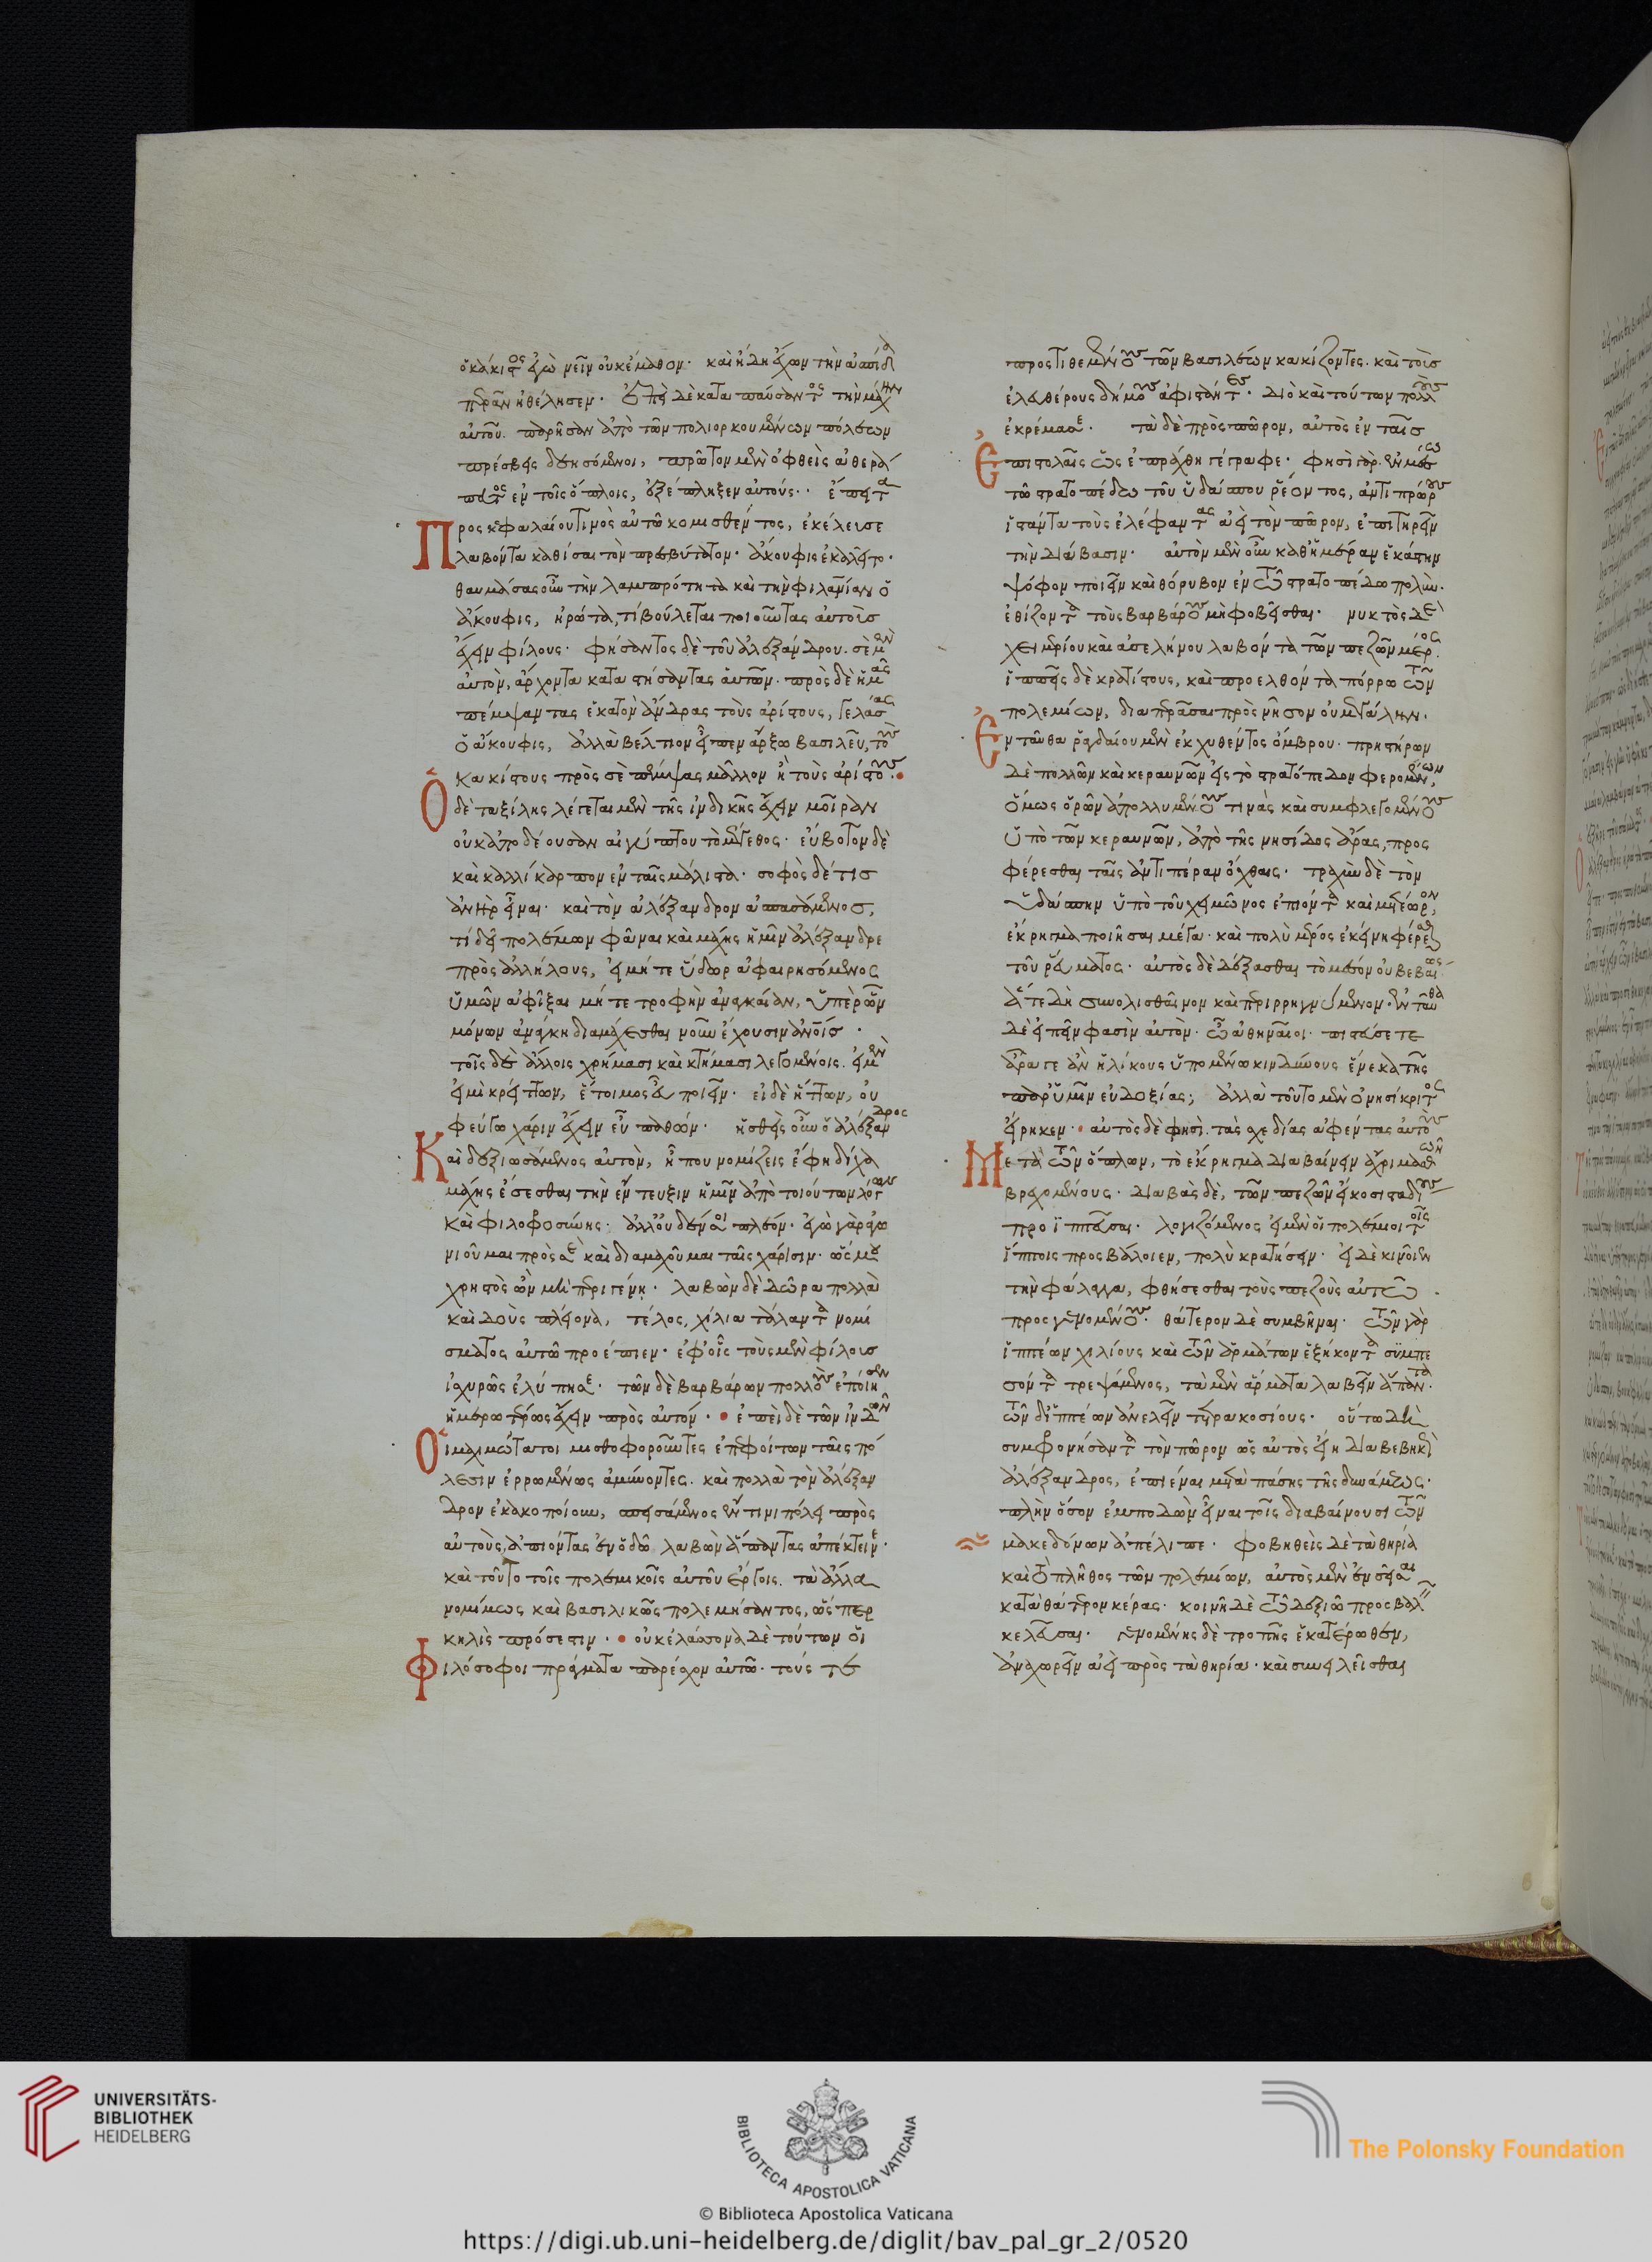 ὁ κάκιστος ἐγὼ νεῖν οὐκ ἔμαθον· καὶ ἤδη ἔχων τὴν ἀσπίδα
περᾶν ἠθέλησεν. ἐπεὶ δὲ καταπαύσαντος τὴν μάχην
αὐτοῦ. παρῆσαν ἀπὸ τῶν πολιορκουμένων πόλεων
πρέσβεις δεησόμενοι, πρῶτον μὲν ὀφθεὶς ἀθερά
πευτος ἐν τοῖς ὅπλοις, ἐξέπληξεν αὐτούς· ἔπειτα
Προσκεφαλαίου τινὸς αὐτῷ κομισθέντος, ἐκέλευσε
λαβόντα καθίσαι τὸν πρεσβύτατον· ἄκουφις ἐκαλεῖτο·
θαυμάσας οὖν τὴν λαμπρότητα καὶ τὴν φιλανθρωπίαν ὁ
ἄκουφις, ἠρώτα, τί βούλεται ποιοῦντας αὐτοὺς
ἔχειν φίλους· φήσαντος δὲ τοῦ ἀλεξάνδρου. σὲ μὲν
αὐτὸν, ἄρχοντα καταστήσαντας αὐτῶν. πρὸς δὲ ἡμᾶς
πέμψαντας ἑκατὸν ἄνδρας τοὺς ἀρίστους, γελάσας
ὁ ἄκουφις, ἀλλὰ βέλτιον εἶπεν ἄρξω βασιλεῦ, τοὺς
κακίστους πρὸς σὲ πέμψας μᾶλλον ἢ τοὺς ἀρίστους.
Ὁ δὲ ταξίλης λέγεται μὲν τῆς ἰνδικῆς ἔχειν μοῖραν
οὐκ ἀποδέουσαν αἰγύπτου τὸ μέγεθος· εὔβοτον δὲ
καὶ καλλίκαρπον ἐν ταῖς μάλιστα. σοφὸς δέ τις
ἀνὴρ εἶναι. καὶ τὸν ἀλέξανδρον ἀσπασάμενος,
τί δεῖ πολέμων φάναι καὶ μάχης ἡμῖν ἀλέξανδρε
πρὸς ἀλλήλους, εἰ μήτε ὕδωρ ἀφαιρησόμενος
ἡμῶν ἀφῖξαι μήτε τροφὴν ἀναγκαίαν, ὑπὲρ ὧν
μόνων ἀνάγκη διαμάχεσθαι νοῦν ἔχουσιν ἀνθρώποις.
τοῖς δὲ ἄλλοις χρήμασι καὶ κτήμασι λεγομένοις. εἰ μὲν
εἰμὶ κρείττων, ἕτοιμος εὖ ποιεῖν. εἰ δὲ ἥττων, οὐ
φεύγω χάριν ἔχειν εὖ παθών. ἡσθεὶς οὖν ὁ ἀλέξανδρος
Καὶ δεξιωσάμενος αὐτὸν, ἦ που νομίζεις ἔφη δίχα
μάχης ἔσεσθαι τὴν ἔντευξιν ἡμῖν ἀπὸ τοιούτων λόγων
καὶ φιλοφροσύνης· ἀλλ' οὐδέν σοι πλέον· ἐγὼ γὰρ ἀγω
νιοῦμαι πρὸς σὲ καὶ διαμαχοῦμαι ταῖς χάρισιν. ὥς μου
χρηστὸς ὢν μὴ περιγένῃ. λαβὼν δὲ δῶρα πολλὰ
καὶ δοὺς πλείονα, τέλος, χίλια τάλαντα νομί
σματος αὐτῷ προέπιεν. ἐφ' οἷς τοὺς μὲν φίλους
ἰσχυρῶς ἐλύπησε. τῶν δὲ βαρβάρων πολλοὺς ἐποίησεν
ἡμερωτέρως ἔχειν πρὸς αὐτόν. ἐπεὶ δὲ τῶν ἰνδῶν
Οἱ μαχιμώτατοι μισθοφοροῦντες ἐπεφοίτων ταῖς πό
λεσιν ἐρρωμένως ἀμύνοντες. καὶ πολλὰ τὸν ἀλέξαν
δρον ἐκακοποίουν, σπεισάμενος ἔν τινι πόλει πρὸς
αὐτοὺς, ἀπιόντας ἐν ὁδῷ λαβὼν ἅπαντας ἀπέκτεινε.
καὶ τοῦτο τοῖς πολεμικοῖς αὐτοῦ ἔργοις. τὰ ἄλλα
νομίμως καὶ βασιλικῶς πολεμήσαντος, ὥσπερ
κηλὶς πρόσεστιν. οὐκ ἐλάσσονα δὲ τούτων οἱ
Φιλόσοφοι πράγματα παρέσχον αὐτῷ. τούς τε
προστιθεμένους τῶν βασιλέων κακίζοντες. καὶ τοὺς
ἐλευθέρους δήμους ἀφιστάντες. διὸ καὶ τούτων πολλοὺς
ἐκρέμασε. τὰ δὲ πρὸς πῶρον, αὐτὸς ἐν ταῖς
Ἐπιστολαῖς ὡς ἐπράχθη γέγραφε. φησὶ γὰρ. ἐν μέσῳ
τῶν στρατοπέδων τοῦ ὑδάσπου ῥέοντος, ἀντιπρώρους
ἱστάντα τοὺς ἐλέφαντας ἀεὶ τὸν πῶρον, ἐπιτηρεῖν
τὴν διάβασιν. αὐτὸν μὲν οὖν καθ' ἡμέραν ἑκάστην
ψόφον ποιεῖν καὶ θόρυβον ἐν τῷ στρατοπέδῳ πολὺν.
ἐθίζοντα τοὺς βαρβάρους μὴ φοβεῖσθαι. νυκτὸς δὲ
χειμερίου καὶ ἀσελήνου λαβόντα τῶν πεζῶν μέρος.
ἱππεῖς δὲ κρατίστους, καὶ προελθόντα πόρρω τῶν
πολεμίων, διαπερᾶσαι πρὸς νῆσον οὐ μεγάλην.
Ἐνταῦθα ῥαγδαίου μὲν ἐκχυθέντος ὄμβρου. πρηστήρων
δὲ πολλῶν καὶ κεραυνῶν εἰς τὸ στρατόπεδον φερομένων,
ὅμως ὁρῶν ἀπολλυμένους τινὰς καὶ συμφλεγομένους
ὑπὸ τῶν κεραυνῶν, ἀπὸ τῆς νησίδος ἄρας, προσ
φέρεσθαι ταῖς ἀντιπέραν ὄχθαις. τραχὺν δὲ τὸν
ὑδάσπην ὑπὸ τοῦ χειμῶνος ἐπιόντα καὶ μετέωρον,
ἔκρηγμα ποιῆσαι μέγα. καὶ πολὺ μέρος ἐκείνῃ φέρεσθαι
τοῦ ῥεύματος. αὐτὸς δὲ δέξασθαι τὸ μέσον οὐ βεβαίως
ἅτε δὴ συνολισθαῖνον καὶ περιρρηγνύμενον. ἐνταῦθα
δὲ εἰπεῖν φασὶν αὐτὸν. ὦ ἀθηναῖοι. πιστεύσετε
ἆρά γε ἂν ἡλίκους ὑπομένω κινδύνους ἕνεκα τῆς
παρ' ὑμῖν εὐδοξίας; ἀλλὰ τοῦτο μὲν ὀνησίκριτος
εἴρηκεν. αὐτὸς δὲ φησὶ. τὰς σχεδίας ἀφέντας αὐτοὺς
Μετὰ τῶν ὅπλων, τὸ ἔκρηγμα διαβαίνειν ἄχρι μασθῶν
βρεχομένους. διαβὰς δὲ, τῶν πεζῶν εἴκοσι σταδίους
προϊππεῦσαι. λογιζόμενος εἰ μὲν οἱ πολέμιοι τοῖς
ἵπποις προσβάλοιεν, πολὺ κρατήσειν. εἰ δὲ κινοῖεν
τὴν φάλαγγα, φθήσεσθαι τοὺς πεζοὺς αὐτῷ
προσγενομένους. θάτερον δὲ συμβῆναι. τῶν γὰρ
ἱππέων χιλίους καὶ τῶν ἁρμάτων ἑξήκοντα συμπε
σόντα τρεψάμενος, τὰ μὲν ἅρματα λαβεῖν ἅπαντα.
τῶν δ' ἱππέων ἀνελεῖν τετρακοσίους. οὕτω δὴ
συμφρονήσαντα τὸν πῶρον ὡς αὐτὸς εἴη διαβεβηκὼς
ἀλέξανδρος, ἐπιέναι μετὰ πάσης τῆς δυνάμεως.
πλὴν ὅσον ἐμποδὼν εἶναι τοῖς διαβαίνουσι τῶν
μακεδόνων ἀπέλιπε. φοβηθεὶς δὲ τὰ θηρία
καὶ τὸ πλῆθος τῶν πολεμίων, αὐτὸς μὲν ἐνσεῖσαι
κατὰ θάτερον κέρας. κοινὴ δὲ τῷ δεξιῷ προσβαλεῖν
κελεῦσαι. γενομένης δὲ τροπῆς ἑκατέρωθεν,
ἀναχωρεῖν ἀεὶ πρὸς τὰ θηρία. καὶ συνειλεῖσθαι
UNIVERSITÄTS-
BIBLIOTHEK
HEIDELBERG
BIBLIOTECA APOSTOLICA VATICANA
The Polonsky Foundation
© Biblioteca Apostolica Vaticana
https://digi.ub.uni-heidelberg.de/diglit/bav_pal_gr_2/0520